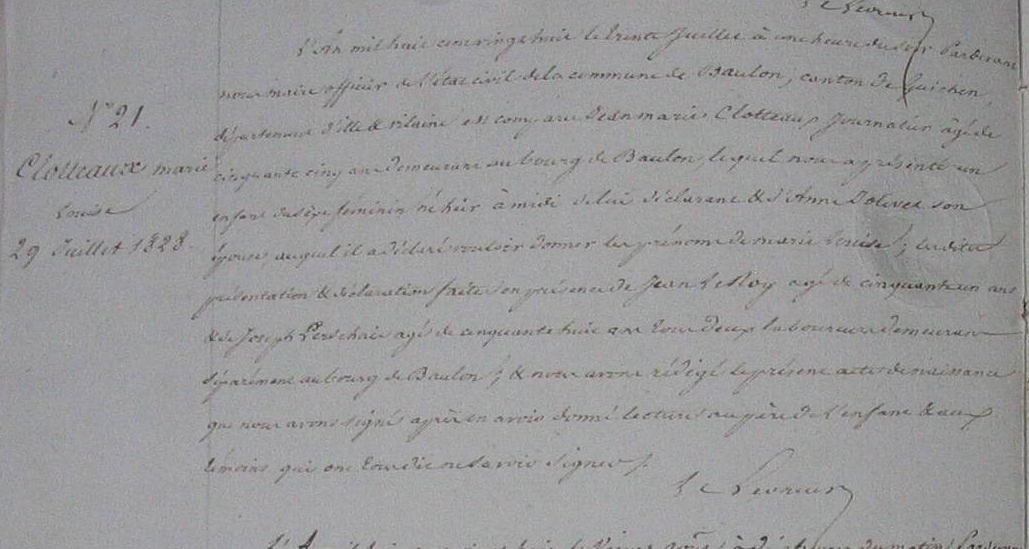 Le Lévreur
L'An mil huit cent vingt huit le trente Juillet à une heure du soir Pardevant
nous maire officier de l'état civil de la commune de Baulon, canton de Guichen,
département d'ille & vilaine est comparu Jean marie Clotteaux Journalier âgé de
N° 21.
Clotteaux marie
Louise
29 Juillet 1828
cinquante cinq ans demeurant au bourg de Baulon, lequel nous a présenté un
enfant du sexe féminin né hier à midi de lui déclarant & d'Anne Dolivet son
épouse, auquel il a déclaré vouloir donner les prénoms de marie Louise; les dites
présentation & déclaration faites en présence de Jean Le Roy agé de cinquante un ans
& de Joseph agé de cinquante huit ans tous deux laboureurs demeurant
séparément au bourg de Baulon; & nous avons rédigé le présent acte de naissance
que nous avons signé après en avoir donné lecture au père de l'enfant & aux
témoins qui ont tous dit ne savoir signer /.
Le Lévreur